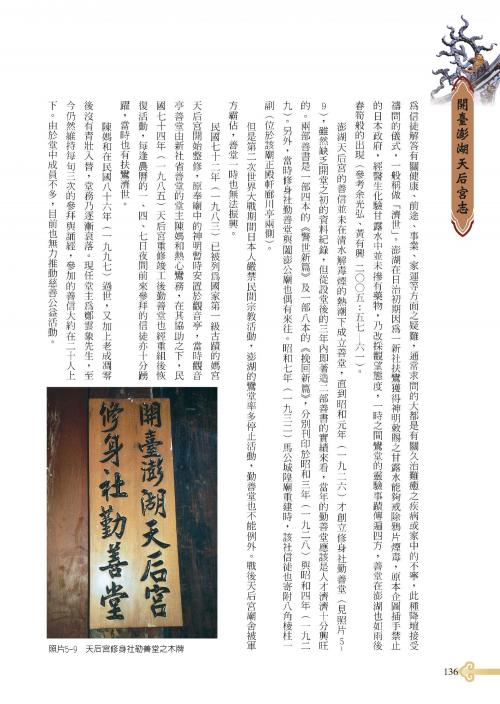 開臺澎湖天后宮志
為信徒解答有關健康、前途、事業、家運等方面之疑難，通常求問的大都是有關久治難癒之疾病或家中的不寧，此種降壇接受
禱問的儀式，一般稱做「濟世」。澎湖在日治初期因為一新社扶鸞獲得神明敕賜之甘露水能夠戒除鴉片煙毒，原本企圖插手禁止
的日本政府，經醫生化驗甘露水中並未滲有藥物，乃改採觀望態度，一時之間鸞堂的靈驗事蹟傳遍四方，善堂在澎湖也如雨後
春筍般的出現（參考余光弘、黃有興 二〇〇五：五七－六一）。
澎湖天后宮的善信並未在清水解毒煙的熱潮下成立善堂，直到昭和元年（一九二六）才創立修身社勤善堂（見照片5-
9），雖然缺乏開堂之初的資料紀錄，但從設堂後的三年內即著造二部善書的實績來看，當年的勤善堂應該是人才濟濟十分興旺
的。兩部善書是一部四本的《醫世新篇》及一部八本的《挽回新篇》，分別刊印於昭和三年（一九二八）與昭和四年（一九二
九）。另外，當時修身社勤善堂與闔澎公廟也偶有來往。昭和七年（一九三二）馬公城隍廟重建時，該社信徒也寄附八角棱柱一
副（位於該廟正殿軒廊川亭兩側）。
但是第二次世界大戰期間日本人嚴禁民間宗教活動，澎湖的鸞堂率多停止活動，勤善堂也不能例外。戰後天后宮廟舍被軍
方霸佔，善堂一時也無法振興。
民國七十二年（一九八三）已被列為國家第一級古蹟的媽宮
天后宮開始整修，原奉廟中的神明暫時安置於觀音亭，當時觀音
亭善堂由新社省善堂的堂主陳媽和熱心鸞務，在其協助之下，民
國七十四年（一九八五）天后宮重修竣工後勤善堂也經重組後恢
復活動，每逢農曆的一、四、七日夜間前來參拜的信徒亦十分踴
躍，當時也有扶鸞濟世。
陳媽和在民國八十六年（一九九七）過世，又加上老成凋零
後沒有青壯入替，堂務乃逐漸衰落。現任堂主為鄭雲象先生，至
今仍然維持每旬三次的參拜與誦經，參加的善信大約在二十人上
下。由於堂中成員不多，目前也無力推動慈善公益活動。
開臺澎湖天后宮
修身社勤善堂
照片5-9 天后宮修身社勤善堂之木牌
136